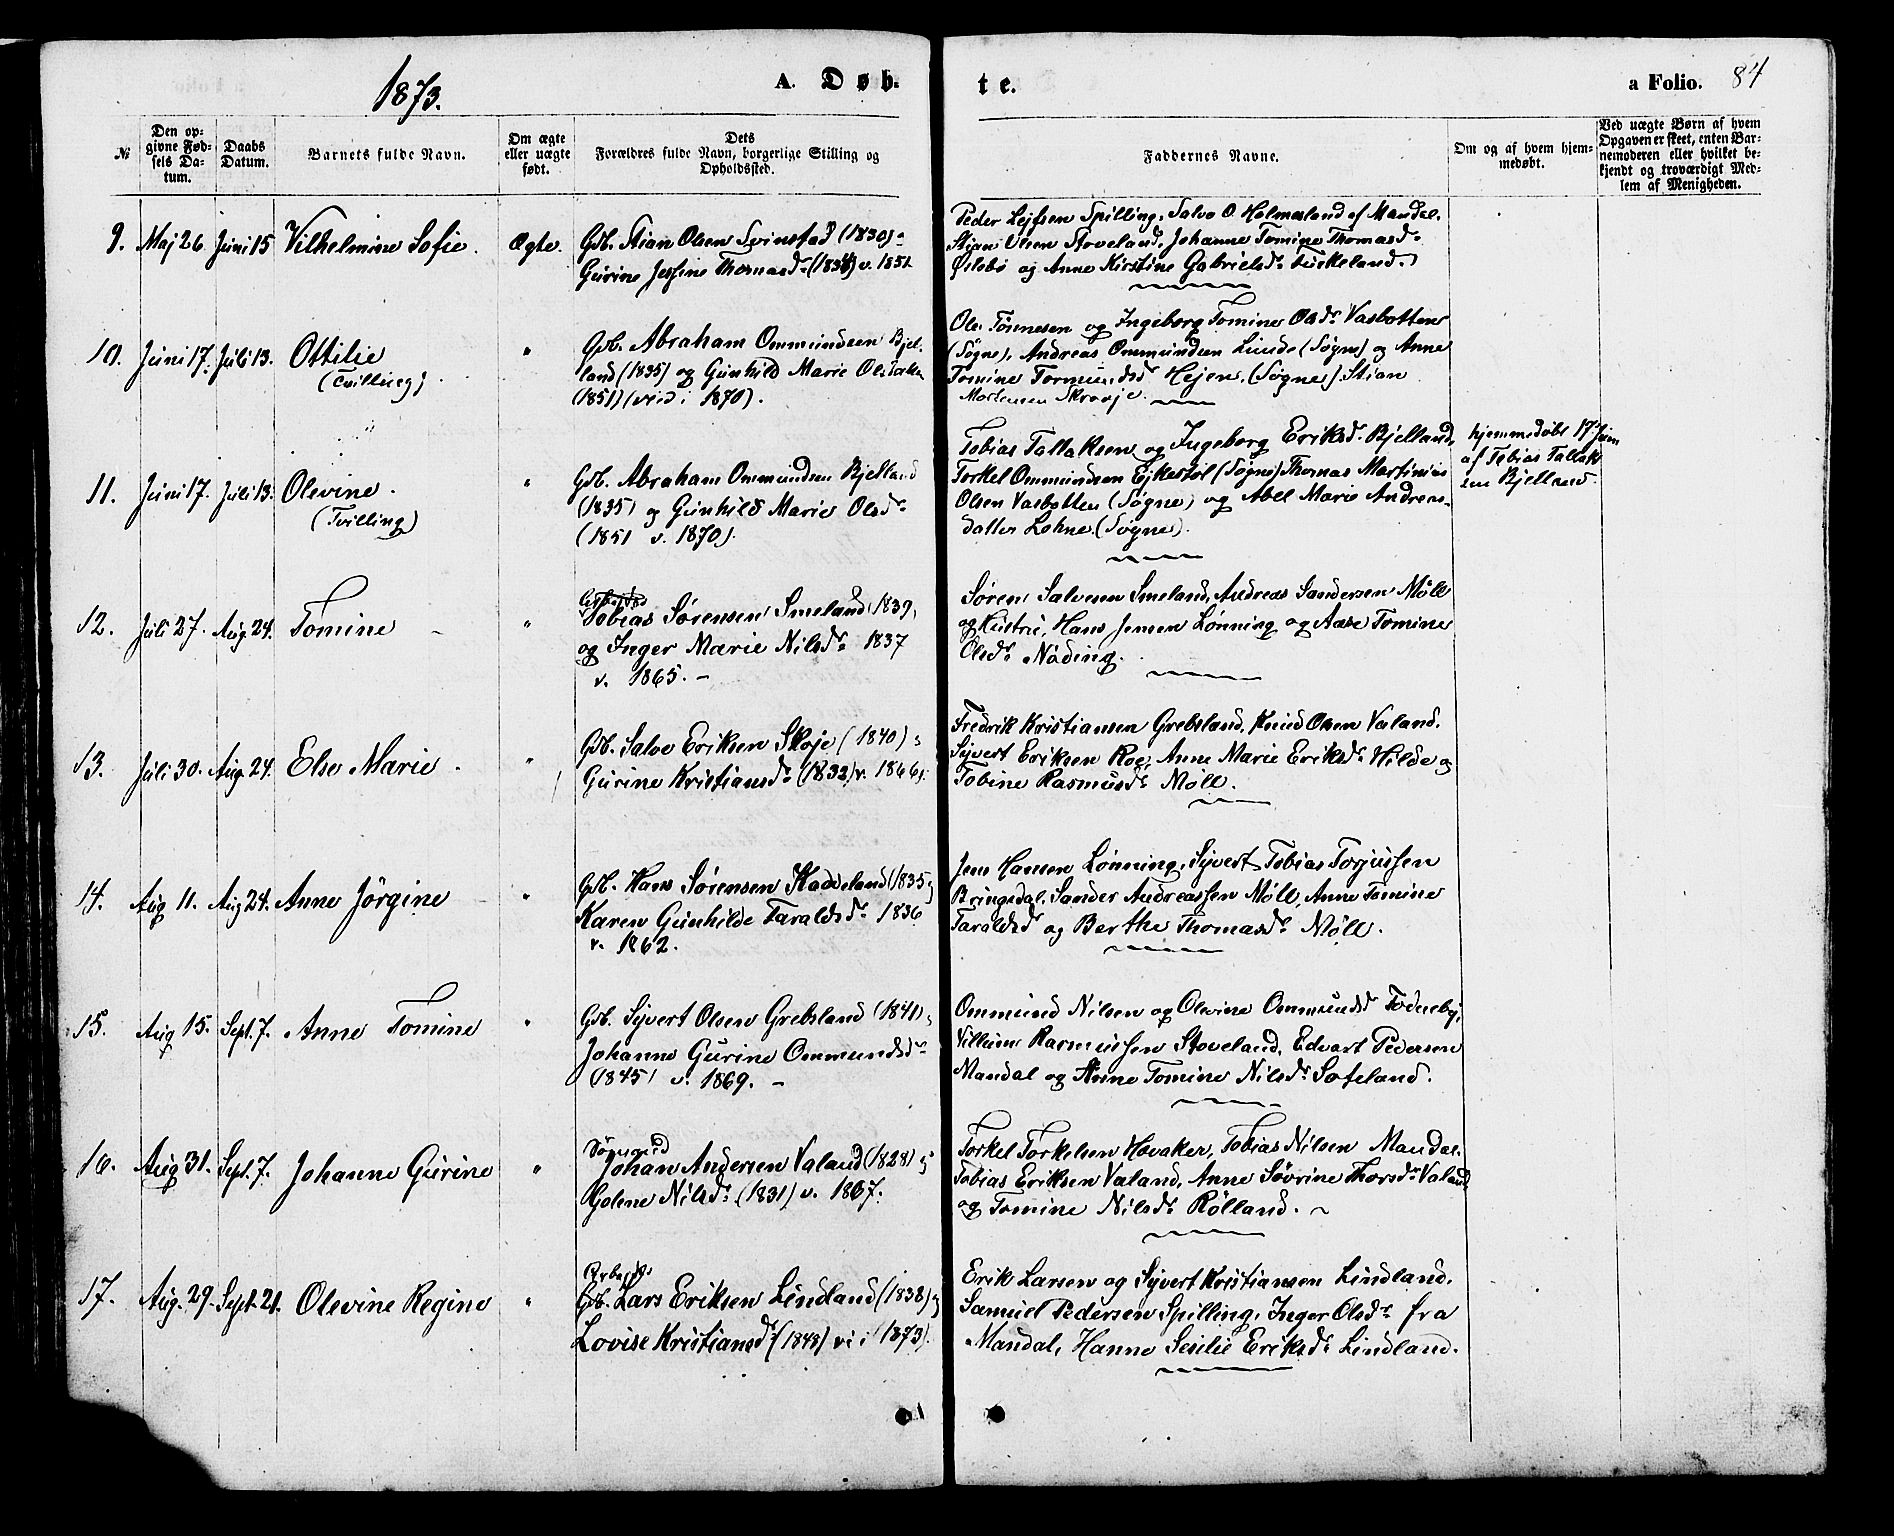 1873.
A. Døb-
te.
a Folio. 84
№
Den op-
givne Fød-
sels Da-
tum.
Daabs
Datum.
Barnets fulde Navn.
Om ægte
eller uægte
født.
Dets
Forældres fulde Navn, borgerlige Stilling og
Opholdssted.
Faddernes Navne.
Om og af hvem hjem-
medøbt.
Ved uægte Børn af hvem
Opgaven er skeet, enten Bar-
nemoderen eller hvilket be-
kjendt og troværdigt Med-
lem af Menigheden.
9. Maj 26. Juni 15 Vilhelmine Sofie. Ægte.
Gdb. Stian Olsen Svinstad (1830) &
Gurine Jessine Thomasd. (1834) v. 1851.
Peder Lejfsen Spilling, Salve O. Holmesland af Mandal.
Stian Olsen Stoveland, Johanne Tomine Thomasd.
Øslebø og Anne Kirstine Gabrielsd.
10. Juni 17. Juli 13. Ottilie
(Tvilling) "
Gdb. Abraham Ommundsen Bjel-
land (1835) og Gunhild Marie Olsdatter
(1851) (vied i 1870).
Ole Tønnesen og Ingeborg Tomine Olsdr. Vasbotten
(Søgne), Andreas Ommundsen Linde (Søgne) og Anne
Tomine Tormundsd. Hejen. (Søgne) Stian
Mortensen Skraaje.
11. Juni 17. Juli 13. Olevine.
(Tvilling) "
Gdb. Abraham Ommundsen Bjelland
(1835) og Gunhild Marie Olsdr.
(1851 v. 1870).
Tobias Tallaksen og Ingeborg Eriksd. Bjelland,
Torkel Ommundsen Ejkestøl (Søgne) Thomas Martinius
Olsen Vasbotten (Søgne) og Abel Marie Andreas-
datter Lohne. (Søgne).
hjemmedøbt 17 Juni
af Tobias Tallak
sen Bjelland.
12. Juli 27. Aug 24. Tomine "
Tobias Sørensen Smeland 1839,
og Inger Marie Nilsdr. 1837
v. 1865.
Søren Salvesen Smeland, Andreas Sandersen Møll
og Hustru, Hans Jensen Lønning og Aase Tomine
Olsdr. Nøding.
13. Juli 30. Aug. 24. Else Marie. "
Gdb. Salve Eriksen Skoje (1840) &
Gurine Kristiansdr. (1832) v. 1866).
Fredrik Kristiansen Grebsland, Knud Olsen Valand.
Syvert Eriksen Roe, Anne Marie Eriksdr. Hilde og
Tobine Rasmusdr. Møll.
14. Aug 11. Aug 24. Anne Jørgine "
Gdb. Hans Sørensen Haddeland (1835 &
Karen Gunhilde Taraldsdr. 1836
v. 1862.
Jens Hansen Lønning, Syvert Tobias Torjussen
Bringsdal, Sander Andreassen Møll, Anne Tomine
Taraldsd. og Berthe Thomasdr. Møll.
15. Aug 15. Sept. 7. Anne Tomine "
Gdb. Syvert Olsen Grebsland (1841) &
Johanne Gurine Ommundsdr.
(1845) v. 1869.
Ommund Nilsen og Olevine Ommundsd.
Villum Rasmussen Stoveland, Edvart Pedersen
Mandal og Anne Tomine Nilsdr.
16. Aug 31. Sept. 7. Johanne Gurine "
Johan Andersen Valand (1828) &
Golene Nilsdr. (1831) v. 1867.
Torkel Torkelsen Hovaker, Tobias Nilsen Mandal.
Tobias Eriksen Valand, Anne Søvrine Thorsdr. Valand
og Tomine Nilsdr. Rølland.
17. Aug. 29. Sept. 21. Olevine Regine "
Gdb. Lars Eriksen Lindland (1838) &
Lovise Kristiansdr (1848) vi i 1873).
Erik Larsen og Syvert Kristiansen Lindland.
Samuel Pedersen Spilling, Inger Olsdr. fra
Mandal, Hanne Sesilie Eriksdr. Lindland.